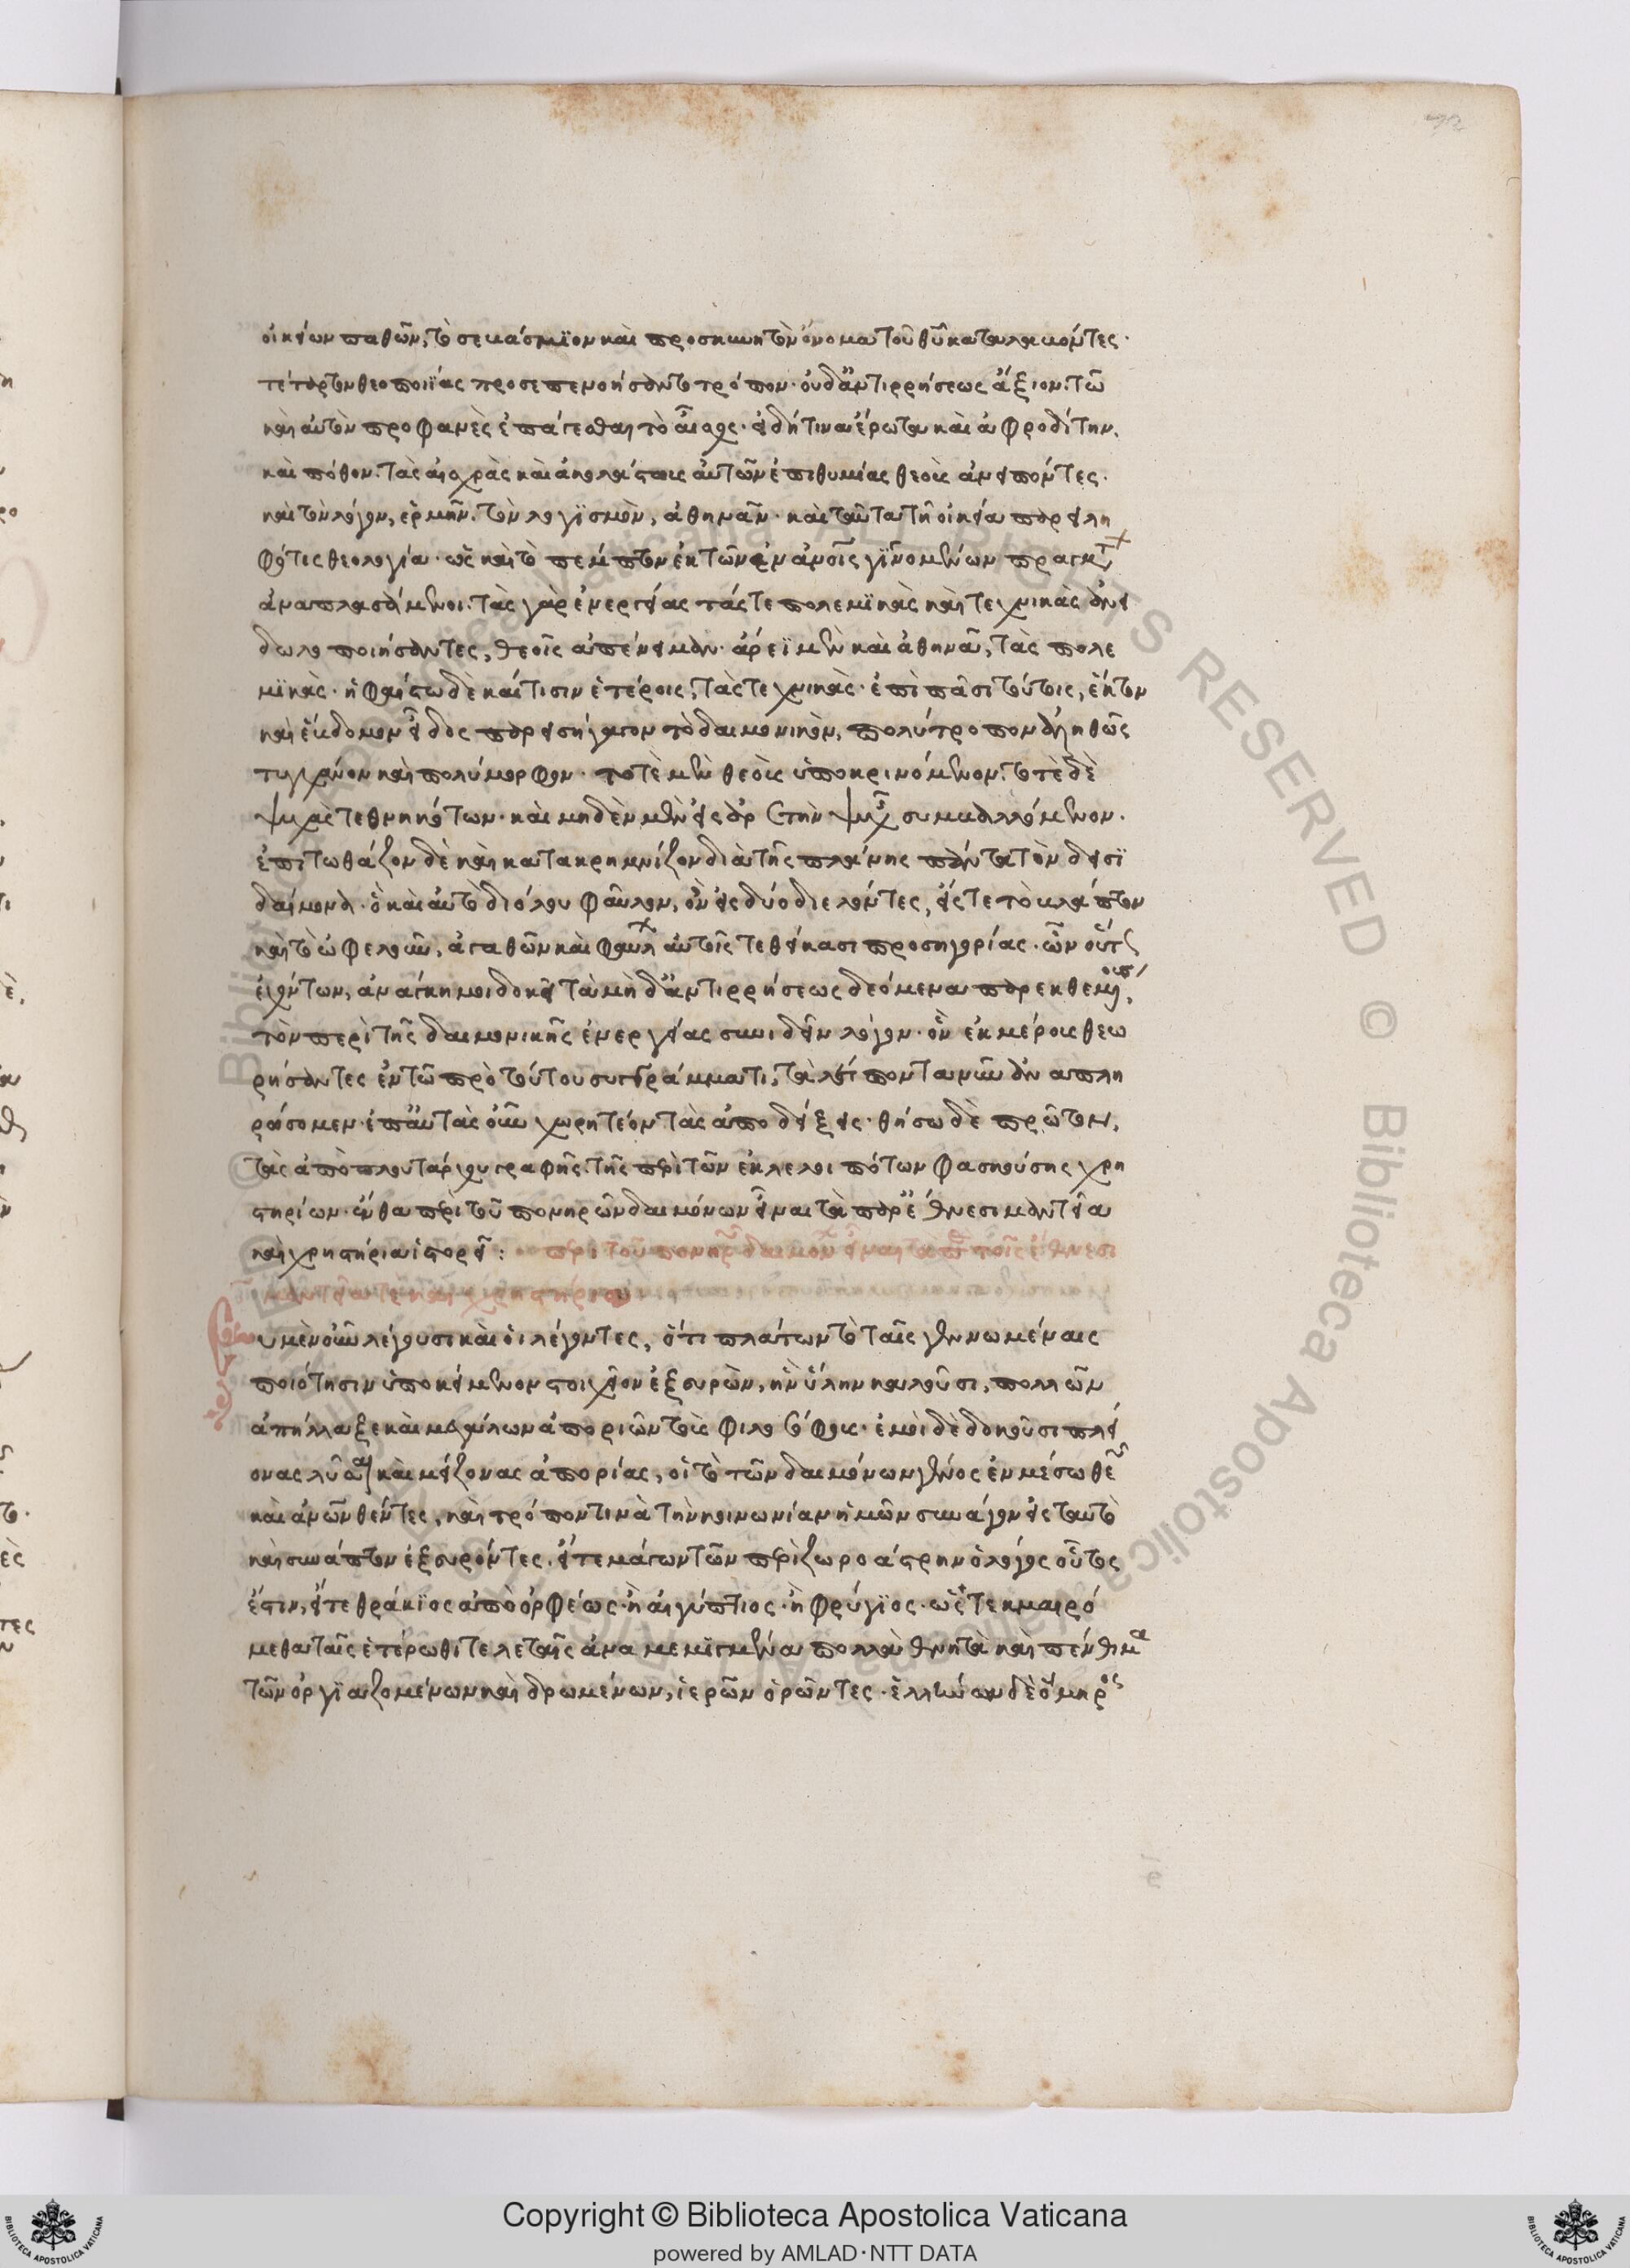 οἰκείων παθῶν, τὸ σεβάσμϊον καὶ προσκυνητὸν ὄνομα τοῦ θῦ καταβαλόντες·
τέταρτον θεοποιΐας προσεπενοήσαντο τρόπον· οὐδ' ἀντιρρήσεως ἄξιον. τῶ
καὶ αὐτὸν προφανὲς ἐπάγεσθαι τὸ αἶσχος· εἰ δή τινα ἔρωτα καὶ ἀφροδίτην,
καὶ πόθον. τὰς αἰσχρὰς καὶ ἀκολάστους αὐτῶν ἐπιθυμίας θεοὺς ἀνειπόντες·
καὶ τὸν λόγον, ἑρμῆν. τὸν λογϊσμὸν, ἀθηνᾶν· καὶ ταῦτα τῆ οἰκεία παρειλη
φότες θεολογία· ὡς καὶ τὸ πέμπτον ἐκ τῶν ἐν ἀνοῖς γϊνομένων πραγμτ
ἀναπλασάμενοι. τὰς γὰρ ἐνεργείας τάς τε πολεμϊκὰς καὶ τεχνικὰς ἀνει
δωλοποιήσαντες, θεοῖς ἀπένειμαν· ἄρεϊ μὲν καὶ ἀθηνᾶ, τὰς πολε
μϊκὰς· ἡφαίστω δὲ καί τισιν ἑτέροις, τὰς τεχνικὰς· ἐπὶ πᾶσι τούτοις, ἕκτον
καὶ ἕβδομον εἶδος παρεισήγαγον τὸ δαιμονικὸν, πολύτροπον ἀληθῶς
τυγχάνον καὶ πολύμορφον· τοτὲ μὲν θεοὺς ὑποκρινόμενον. τοτὲ δὲ
ψυχὰς τεθνηκότων· καὶ μηδὲν μὲν εἰς ἀρετὴν ψυχῆ συμβαλλόμενον·
ἐπιτωθάζον δὲ καὶ κατακρημνίζον διὰ τῆς πλάνης πάντα τὸν δεισϊ
δαίμονα· ὃ καὶ αὐτὸ διόλου φαῦλον, ὂν εἰς δύο διελόντες, εἴς τε τὸ βλάπτον
καὶ τὸ ὠφελοῦν, ἀγαθῶν καὶ φαύλ αὐτοῖς τεθείκασι προσηγορίας· ὧν οὕτς
ἐχόντων, ἀνάγκη μοι δοκεῖ τὰ μὴ δ' ἀντιρρήσεως δεόμενα παρεκθεμένους,
τὸν περὶ τῆς δαιμονικῆς ἐνεργείας συνιδεῖν λόγον· ὃν ἐκ μέρους θεω
ρήσαντες ἐν τῶ πρὸ τούτου συγγράμματι, τὰ λείποντα νῦν ἀναπλη
ρώσομεν· ἐπ' αὐτὰς οὖν χωρητέον τὰς ἀποδείξεις· θήσω δὲ πρῶτον,
τὰς ἀπὸ πλουτάρχου γραφῆς. τῆς περὶ τῶν ἐκλελοιπότων φασκούσης χρη
στηρίων· ἔνθα περὶ τοῦ πονηρῶν δαιμόνων εἶναι τὰ παρ' ἔθνεσι μαντεῖα
καὶ χρηστήρια ἱστορεῖ:  περὶ τοῦ πονηρ δαιμόν εἶναι τὰ π τοῖς ἔθνεσι
μαντεῖά τε καὶ χρηστήρια
υ μὲν οὖν λέγουσι καὶ οἱ λέγοντες, ὅτι πλάτων τὸ ταῖς γεννωμέναις
ποιότησιν ὑποκείμενον στοιχεῖον ἐξευρὼν, ἣν ὕλην καλοῦσι, πολλῶν
ἀπήλλαξε καὶ μεγάλων ἀποριῶν τοὺς φιλοσόφους· ἐμοὶ δὲ δοκοῦσι πλεί
ονας λῦσαι καὶ μείζονας ἀπορίας, οἱ τὸ τῶν δαιμόνων γένος ἐν μέσω θεῶν
καὶ ἀνῶν θέντες, καὶ τρόπον τινὰ τὴν κοινωνίαν ἡμῶν συνάγον εἰς ταὐτὸ
καὶ συνάπτον ἐξευρόντες. εἴτε μάγων τῶν περὶ ζωροάστρην ὁ λόγος οὗτος
ἐστιν, εἴτε θράκϊος ἀπὸ ὀρφέως· ἢ αἰγύπτιος· ἢ φρύγϊος· ὡς τεκμαιρό
μεθα ταῖς ἑτέρωθι τελεταῖς ἀναμεμϊγμένα πολλὰ θνητὰ καὶ πένθιμα
τῶν ὀργϊαζομένων καὶ δρωμένων, ἱερῶν ὁρῶντες· ἑλλήνων δὲ ὅμηρος